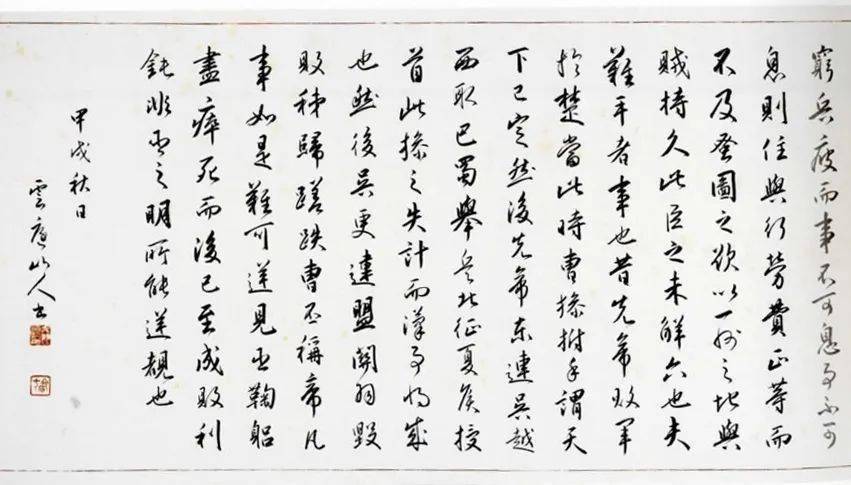 窮兵疲而事不可息事不可
息則住與行勞費正等而
不及蚤圖之欲以一州之地與
賊持久此臣之未解六也夫
難平者事也昔先帝敗軍
於楚當此時曹操拊手謂天
下已定然後先帝東連吳越
西取巴蜀舉兵北征夏侯授
首此操之失計而漢事將成
也然後吳更違盟關羽毀
敗秭歸蹉跌曹丕稱帝凡
事如是難可逆見臣鞠躬
盡瘁死而後已至成敗利
鈍非臣之明所能逆覩也
甲戌秋日
雲山人書